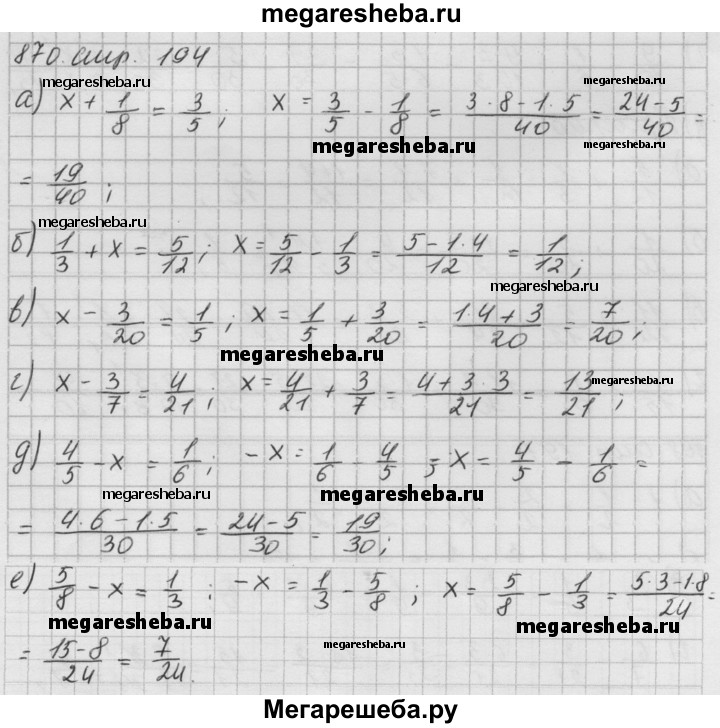 megaresheba.ru
870. стр. 194
megaresheba.ru megaresheba.ru
а) x + 1/8 = 3/5; x = 3/5 - 1/8 = (3·8-1·5)/40 = (24-5)/40 =
megaresheba.ru megaresheba.ru
= 19/40;
megaresheba.ru
б) 1/3 + x = 5/12; x = 5/12 - 1/3 = (5-1·4)/12 = 1/12;
megaresheba.ru
в) x - 3/20 = 1/5; x = 1/5 + 3/20 = (1·4+3)/20 = 7/20;
megaresheba.ru
г) x - 3/7 = 4/21; x = 4/21 + 3/7 = (4+3·3)/21 = 13/21;
megaresheba.ru
д) 4/5 - x = 1/6; -x = 1/6 - 4/5; x = 4/5 - 1/6 =
megaresheba.ru megaresheba.ru
= (4·6-1·5)/30 = (24-5)/30 = 19/30;
е) 5/8 - x = 1/3; -x = 1/3 - 5/8; x = 5/8 - 1/3 = (5·3-1·8)/24 =
megaresheba.ru megaresheba.ru
= (15-8)/24 = 7/24.
megaresheba.ru
Мегарешеба.ру